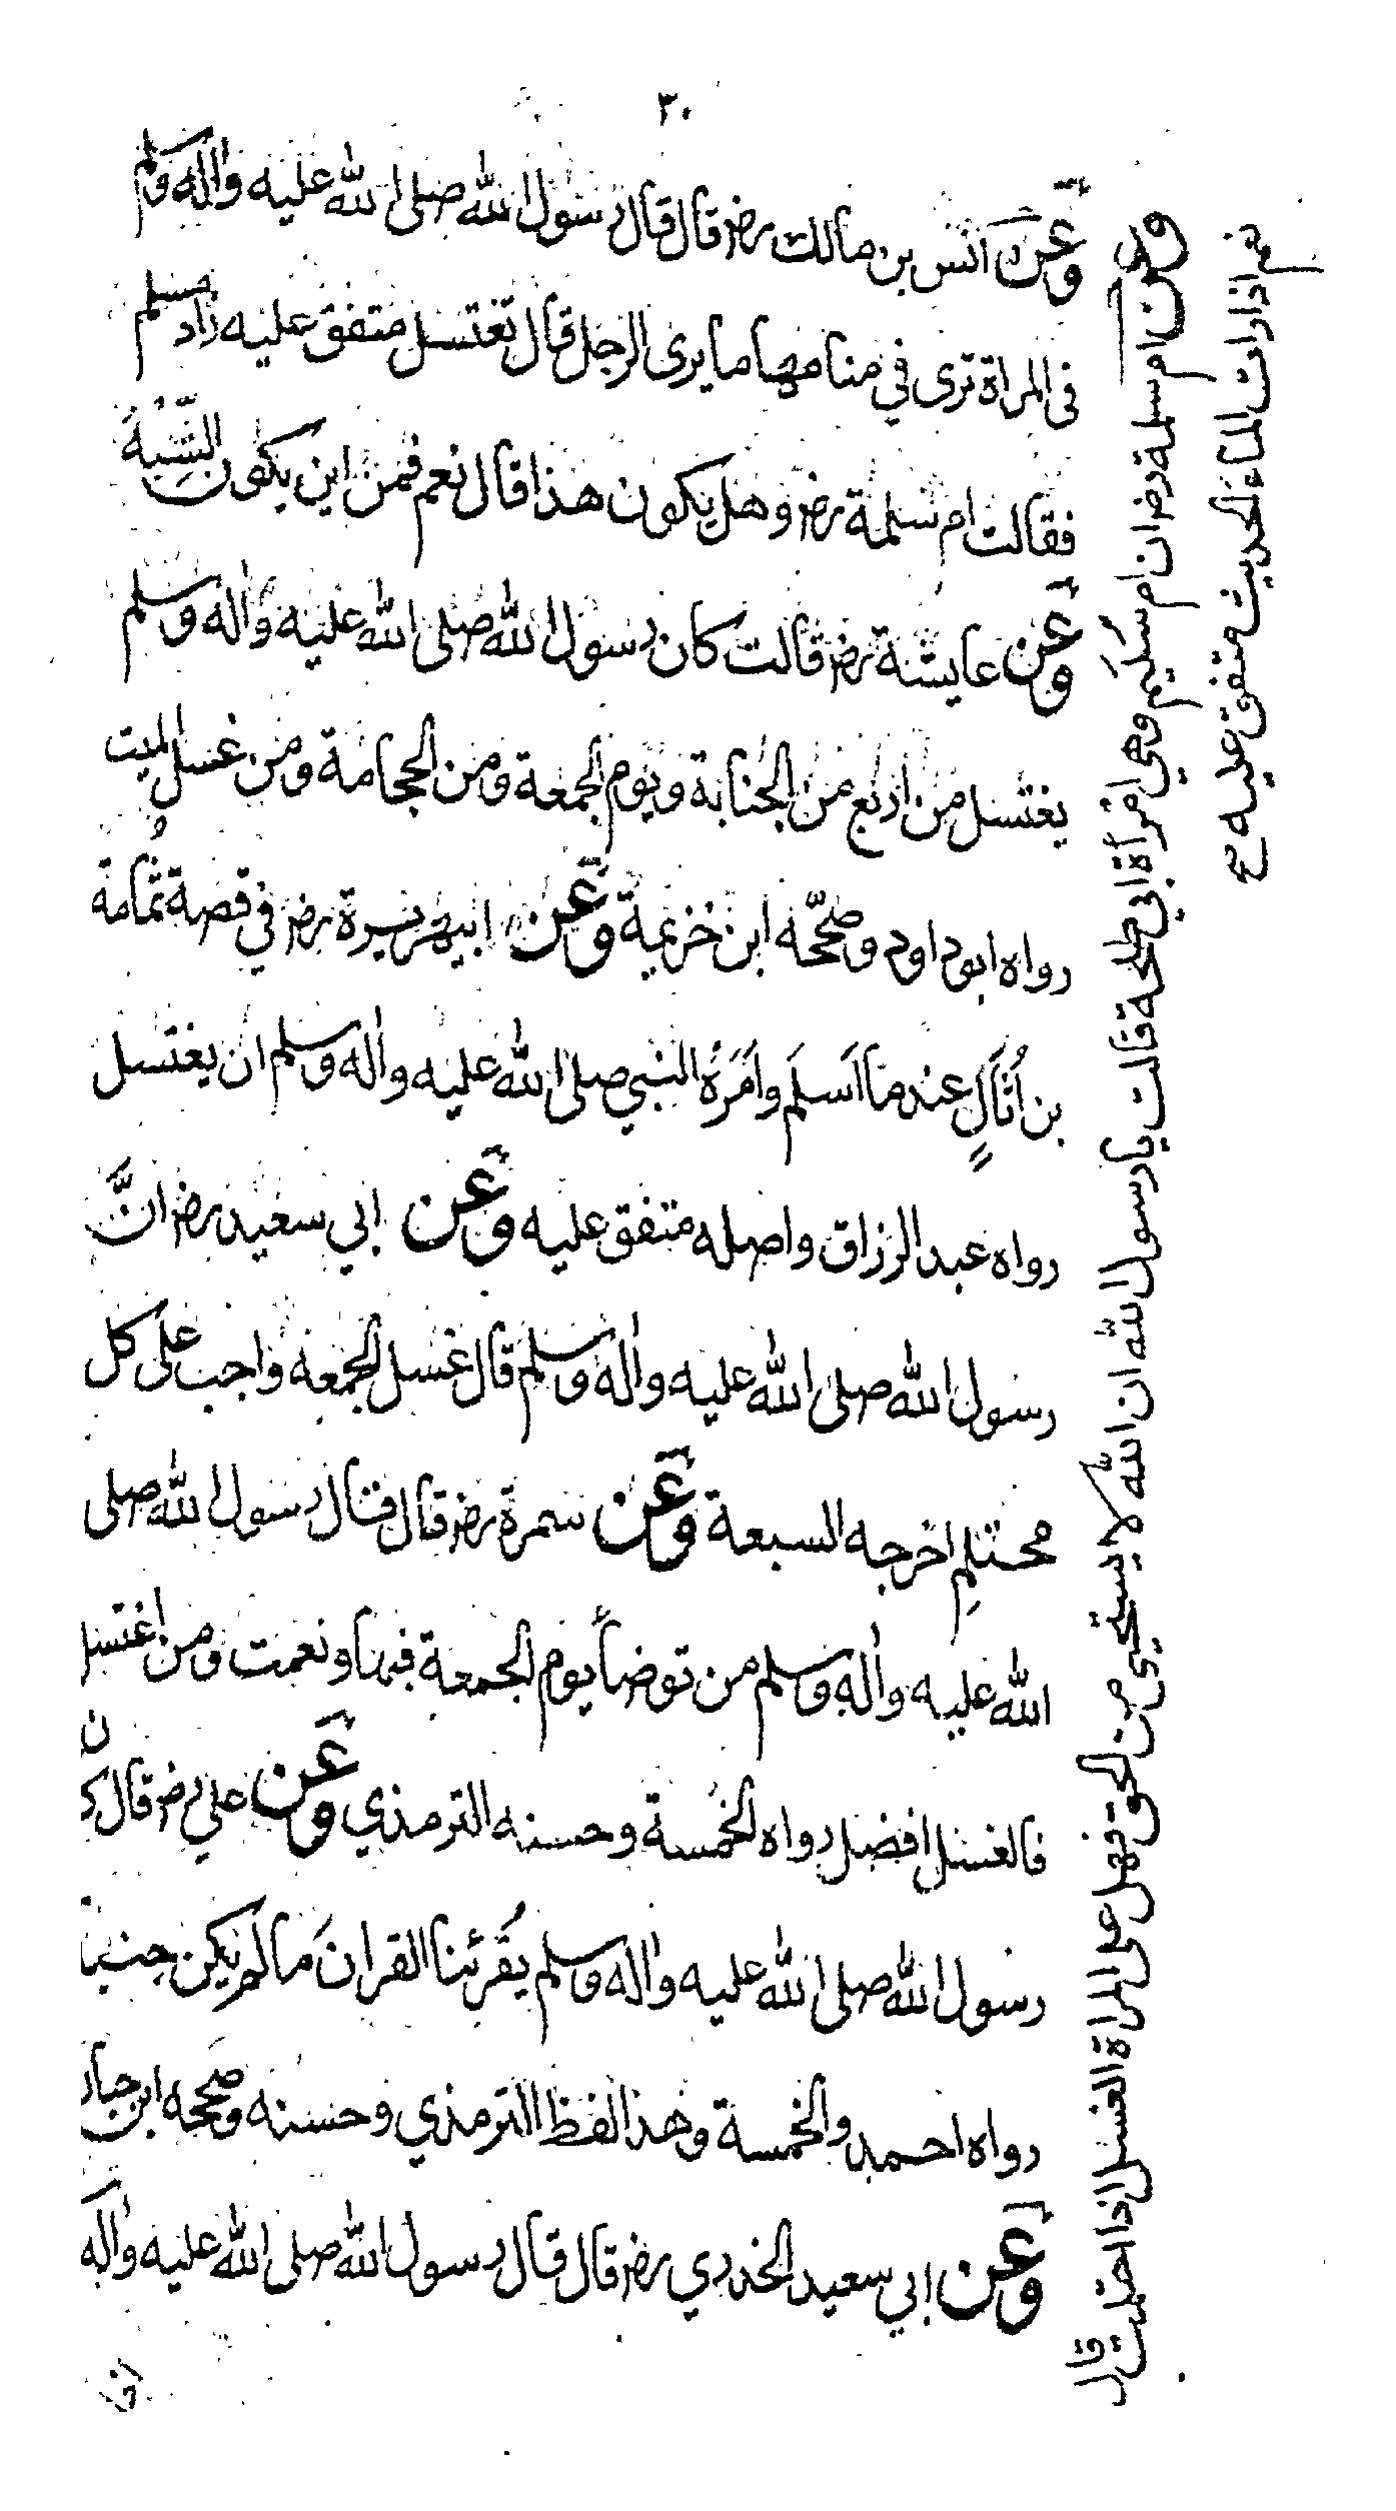 ٣٠
وعن انس بن مالك رضر قال قال رسول الله صلى الله عليه واله وسلم
فى المراة ترى في منامها ما يرى الرجل قال تغتسل متفق عليه زاد مسلم
فقالت ام سلمة رضر وهل يكون هذا قال نعم فمن اين يكون الشبه
وعن عايشة رضر قالت كان رسول الله صلى الله عليه واله وسلم
يغتسل من اربع من الجنابة ويوم الجمعة ومن الحجامة ومن غسل الميت
رواه ابوداود وصححه ابن خزيمة وعن ابيهريرة رضر في قصة ثمامة
بن اُثَالٍ عند ما اَسلَم واَمَرَهُ النبي صلى الله عليه واله وسلم ان يغتسل
رواه عبد الرزاق واصله متفق عليه وعن ابي سعيد رضر انَّ
رسول الله صلى الله عليه واله وسلم قال غسل الجمعة واجب على كل
محتلمِ اخرجه السبعة وعن سمرة رضر قال قال رسول الله صلى
الله عليه واله وسلم من توضأ يوم الجمعة فبها ونعمت ومن اغتسل
فالغسل افضل رواه الخمسة وحسنه الترمذي وعن علي رضر قال كان
رسول الله صلى الله عليه واله وسلم يقرئنا القران ما لم يكن جنبا
رواه احمد والخمسة وهذا لفظ الترمذي وحسنه وصححه ابن حبان
وعن ابي سعيد الخدري رضر قال قال رسول الله صلى الله عليه واله
وعن ام سلمة رضر ان ام سليم وهي امرأة ابي طلحة قالت يا رسول الله ان الله لا يستحيى من الحق فهل على المراة الغسل اذا احتلمت قال
نعم اذا رات الماء الحديث متفق عليه